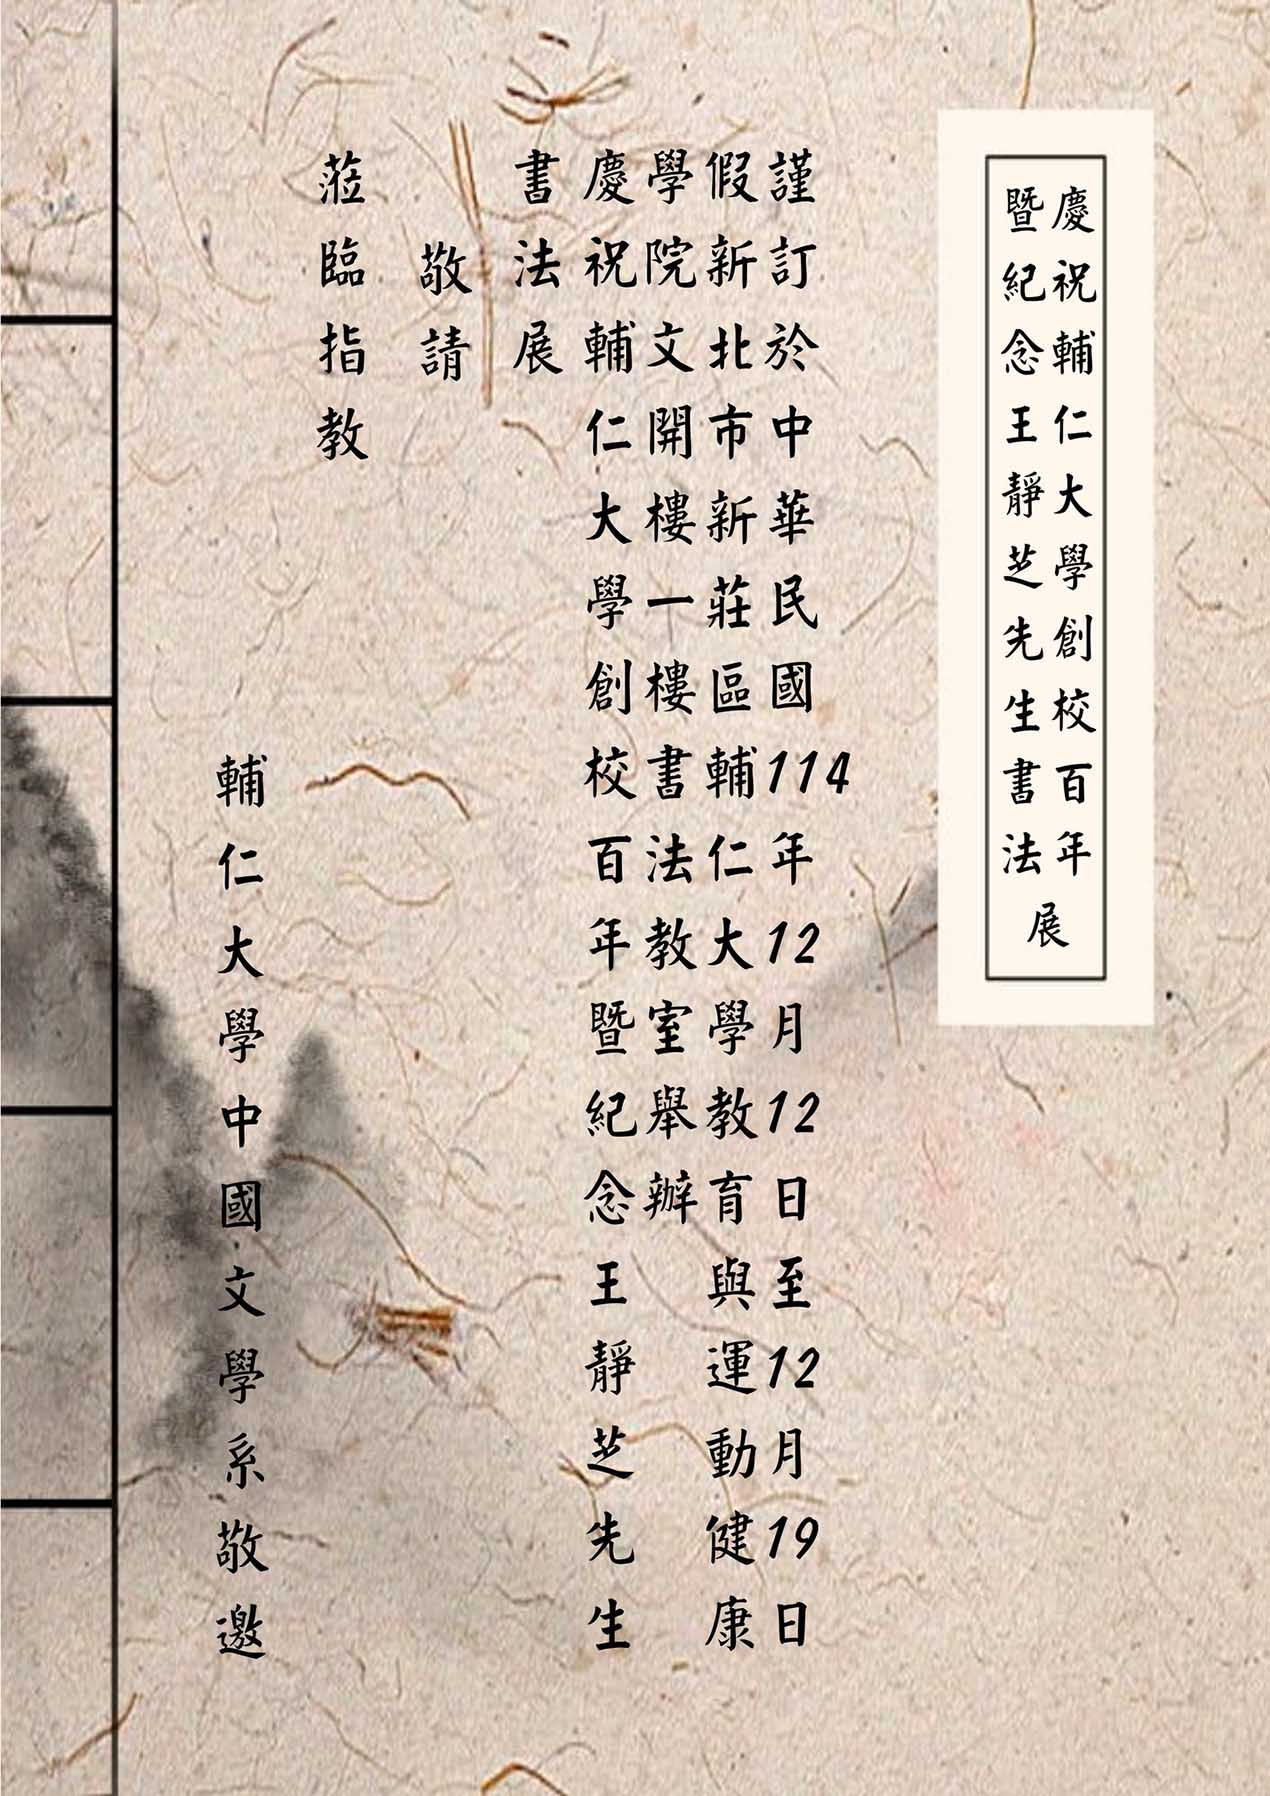 慶祝輔仁大學創校百年
暨紀念王靜芝先生書法
展
謹訂於中華民國114年12月12日至12月19日
假新北市新莊區輔仁大學教育與運動健康
學院文開樓一樓書法教室舉辦
慶祝輔仁大學創校百年暨紀念王靜芝先生
書法展
敬請
蒞臨指教
輔仁大學中國文學系敬邀